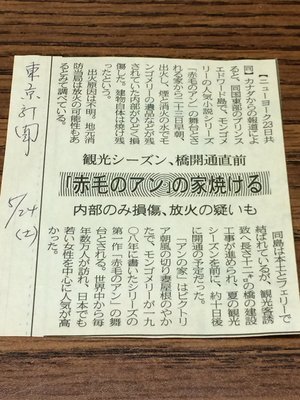 東京新聞
5/24
(土)
観光シーズン、橋開通直前
「赤毛のアン」の家焼ける
内部のみ損傷、放火の疑いも
【ニューヨーク23日共
同】カナダからの報道によ
ると、同国東部のプリンス
エドワード島で、モンゴメ
リーの人気小説シリーズ
「赤毛のアン」の舞台とさ
れる家から二十三日早朝、
出火し、煙と消火の水でモ
ンゴメリーの遺品など残さ
れていた内部がひどく損
傷した。建物自体は焼け残
ったという。
出火原因は不明。地元消
防当局は放火の可能性もあ
るとみて調べている。
同島は本土とフェリーで
結ばれているが、観光客誘
致へ長さ の橋の建設
工事が進められ、夏の観光
シーズンを前に、約十日後
に開通の予定だった。
「アンの家」はビクトリ
ア朝風の切り妻屋根のやか
たで、モンゴメリーが一九
〇八年に書いたシリーズの
第一作「赤毛のアン」の舞
台とされる。世界中から毎
年数万人が訪れ、日本でも
若い女性を中心に人気が高
かった。